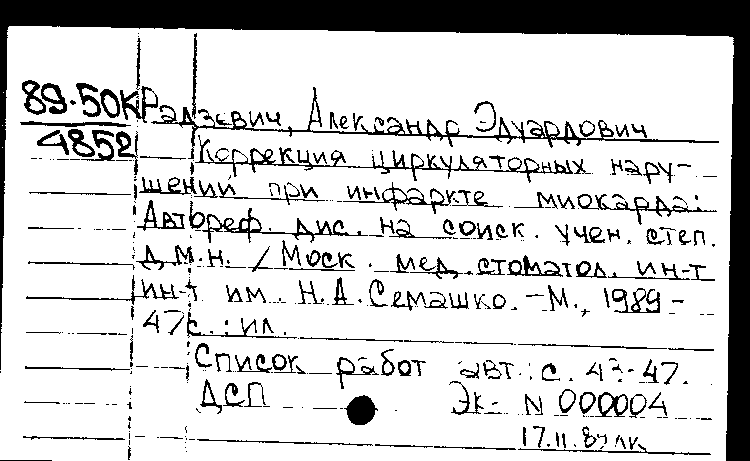 89-50К Радзевич, Александр Эдуардович
4852 Коррекция циркуляторных нару-
шений при инфаркте миокарда:
Автореф. дис. на соиск. учен. степ.
д.м.н. / Моск. мед. стоматол. ин-т
ин-т им. Н.А. Семашко. - М., 1989 -
47с.: ил.
Список работ авт.: с. 43-47.
ДСП Эк- N 000004
17.11.89